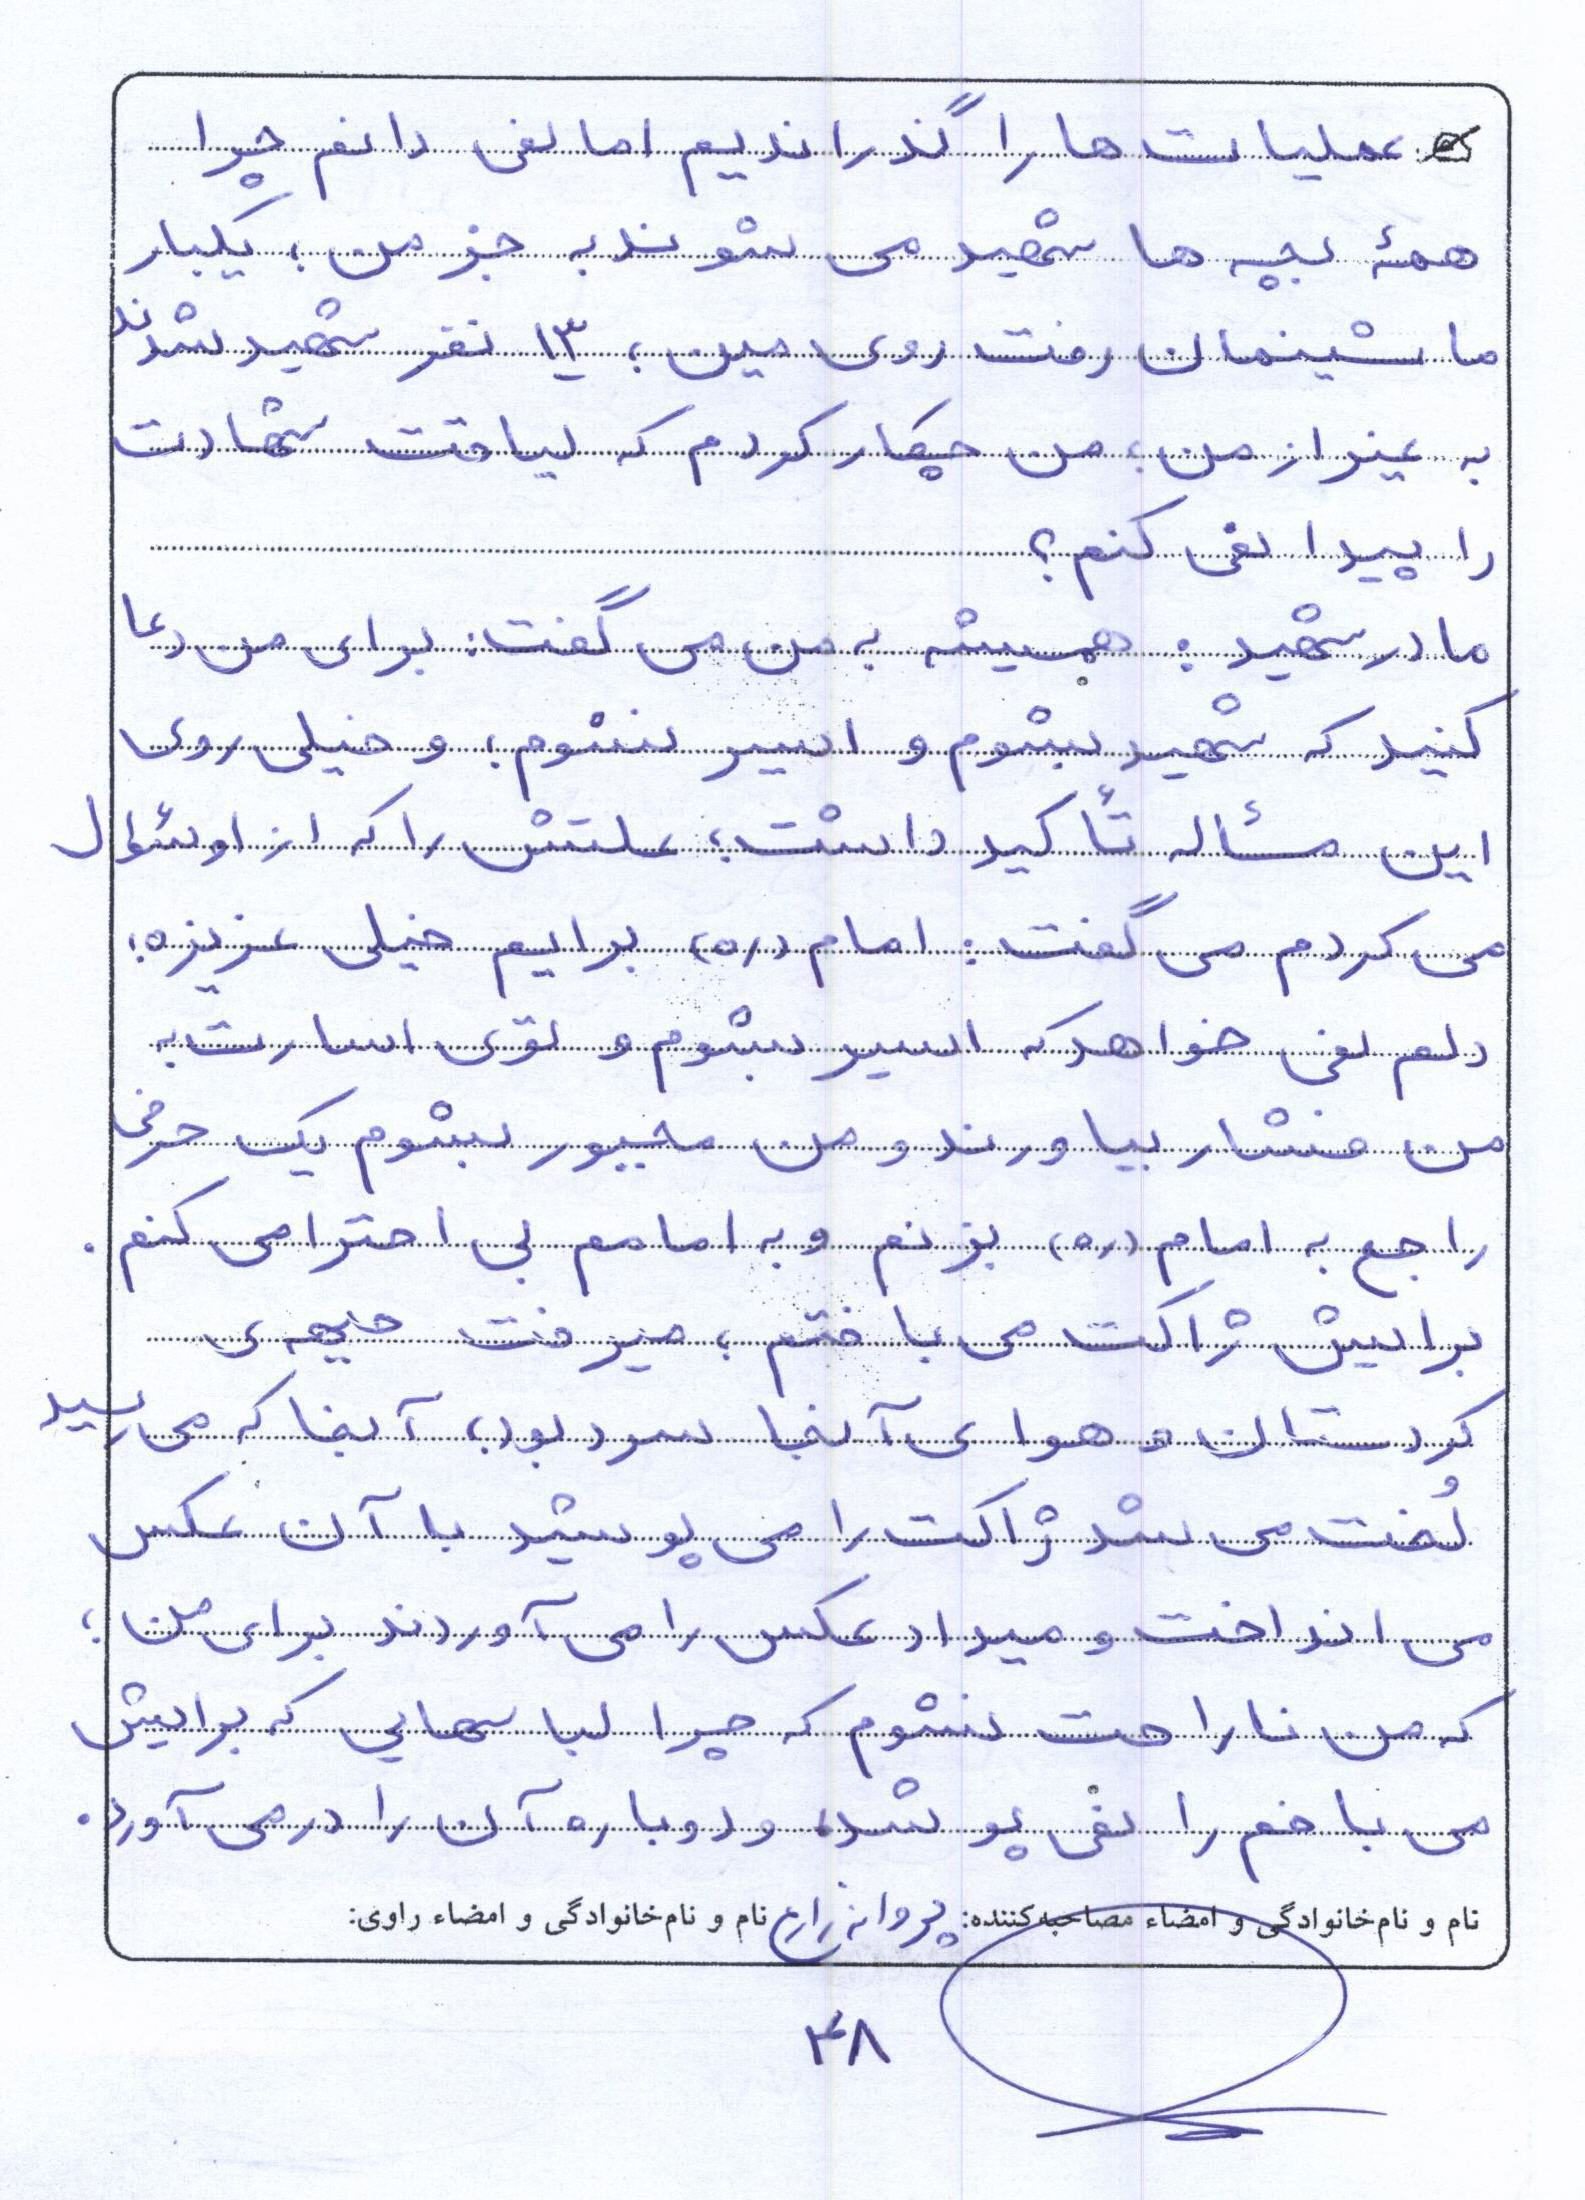 عملیات ها را گذراندیم اما نمی دانم چرا
همهٔ بچه ها شهید می شوند به جز من؛ یکبار
ماشینمان رفت روی مین؛ ۱۳ نفر شهید شدند
به غیر از من؛ من چکار کردم که لیاقت شهادت
را پیدا نمی کنم؟
مادر شهید: همیشه به من می گفت: برای من دعا
کنید که شهید بشوم و اسیر نشوم؛ و خیلی روی
این مسأله تأکید داشت؛ علتش را که از او سئوال
می کردم می گفت: امام (ره) برایم خیلی عزیزه؛
دلم نمی خواهد که اسیر بشوم و توی اسارت به
من فشار بیاورند و من مجبور بشوم یک حرفی
راجع به امام (ره) بزنم و به امامم بی احترامی کنم.
برایش ژاکت می بافتم؛ میرفت جبهه ی
کردستان و هوای آنجا سرد بود؛ آنجا که می رسید
لُخت می شد ژاکت را می پوشید با آن عکس
می انداخت و میداد عکس را می آوردند برای من؛
که من ناراحت نشوم که چرا لباسهایی که برایش
می بافم را نمی پوشد، و دوباره آن را در می آورد.
نام و نام‌خانوادگی و امضاء مصاحبه‌کننده: پروانه زارع نام و نام‌خانوادگی و امضاء راوی:
۴۸